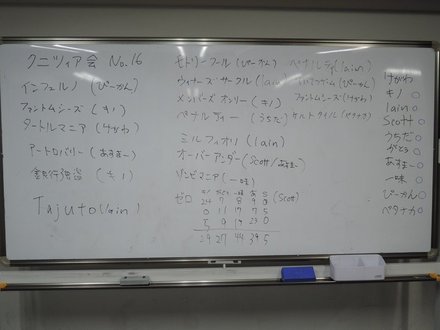 クニツィア会 No.16
インフェルノ (ぴーかん)
ファントムシーズ (キノ)
タートルマニア (けがわ)
アートロバリー (あすまー)
銀行強盗 (キノ)
Tajuto (lain)
モトリーフール (ぴーかん)
ウィナーズサークル (lain)
メンバーズオンリー (キノ)
ペナルティー (うちだ)
ミルフィオリ (lain)
オーバーアンダー (Scott/あすまー)
ゾンビマニア (一味)
ゼロ (Scott)
24 7 8 9 0
0 11 17 7 5
5 9 19 23 0
29 27 44 39 5
ペナルティ (lain)
(ぴーかん)
ファントムシーズ (けがわ)
ケルトタイル (ペタナカ)
けがわ
キノ
lain
Scott
うちだ
がとう
あすまー
一味
ぴーかん
ペタナカ